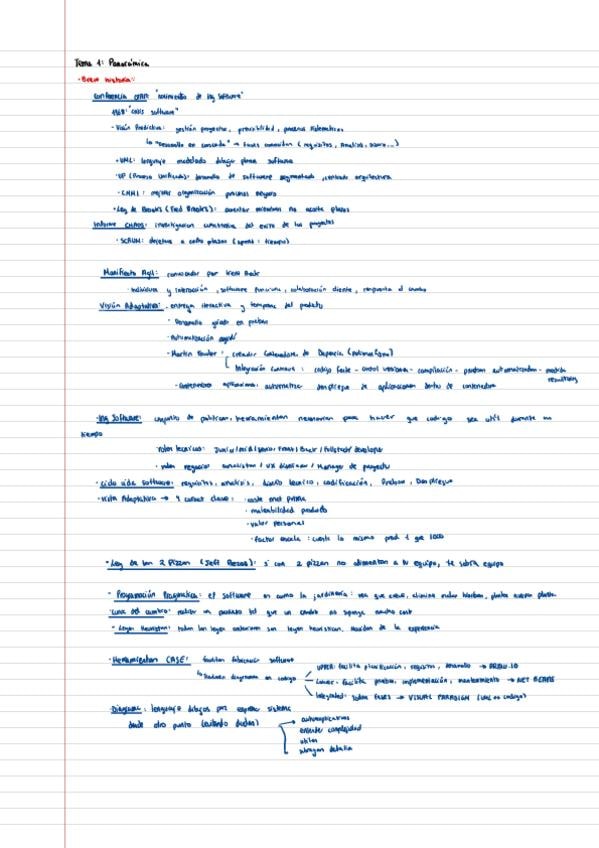 Tema 1: Panorámica
- Breve historia:
Conferencia OTAN: "nacimiento de Ing Software"
1968: "crisis software"
- Visión Predictiva: gestión proyectos, previsibilidad, procesos sistemáticos
"Desarrollo en cascada" → fases conocidas (requisitos, análisis, ...)
- UML: lenguaje modelado dibujar planos software
- UP (Proceso Unificado): desarrollo de software segmentado, centrado arquitectura
- CMMI: mejorar organización procesos
- Ley de Brooks (Fred Brooks): aumentar no acorta plazos
Informe CHAOS: investigación del éxito de los proyectos
- SCRUM: objetivos a corto plazo (sprint: tiempo)
Manifiesto Ágil: convocador por Kent Beck
Individuos y interacción, software funciona, colaboración cliente, respuesta al cambio
Visión Adaptativa: entrega iterativa y temprana del producto
- Desarrollo guiado en pruebas
- Automatización
- Martin Fowler: creador Contenedores de
Integración continua: código fuente - control versiones - compilación - pruebas automatizadas - resultados
- Contenedores aplicaciones: automatizar despliegue de aplicaciones dentro de contenedores
- Ing Software: conjunto de prácticas, herramientas necesarias para hacer que código sea útil durante un
tiempo
roles técnicos: Junior/mid/senior Front/Back/Fullstack developer
- roles negocio: analistas / UX diseñador / Manager de proyecto
- Ciclo vida software: requisitos, análisis, diseño técnico, codificación, Pruebas, Despliegue
- Vista Adaptativa → 4 clave: - coste mat prima
- maleabilidad producto
- valor personal
- factor escala: cuesta lo mismo prod 1 que 1000
- Ley de las 2 Pizzas (Jeff Bezos): si con 2 pizzas no alimentas a tu equipo, te sobra equipo
- Programación Pragmática: el software es como la jardinería: vea que crece, elimina malas hierbas, planta nuevas plantas
- Curva del cambio: realizar un producto tal que un cambio no suponga mucho coste
- Leyes Heurísticas: todas las leyes anteriores son leyes heurísticas, nacidas de la experiencia
- Herramientas CASE: facilitan fabricación software
diagramas en código
UPPER: facilita planificación, requisitos, desarrollo → DRAW.IO
Lower: facilita pruebas, implementación, mantenimiento → NET BEANS
Integrated: todas fases → VISUAL PARADIGM (UML no código)
- Diagrama: lenguaje dibujos por expresar sistema
desde otro punto (evitando dudas)
autoexplicativos
entender complejidad
útiles
abragan detalles